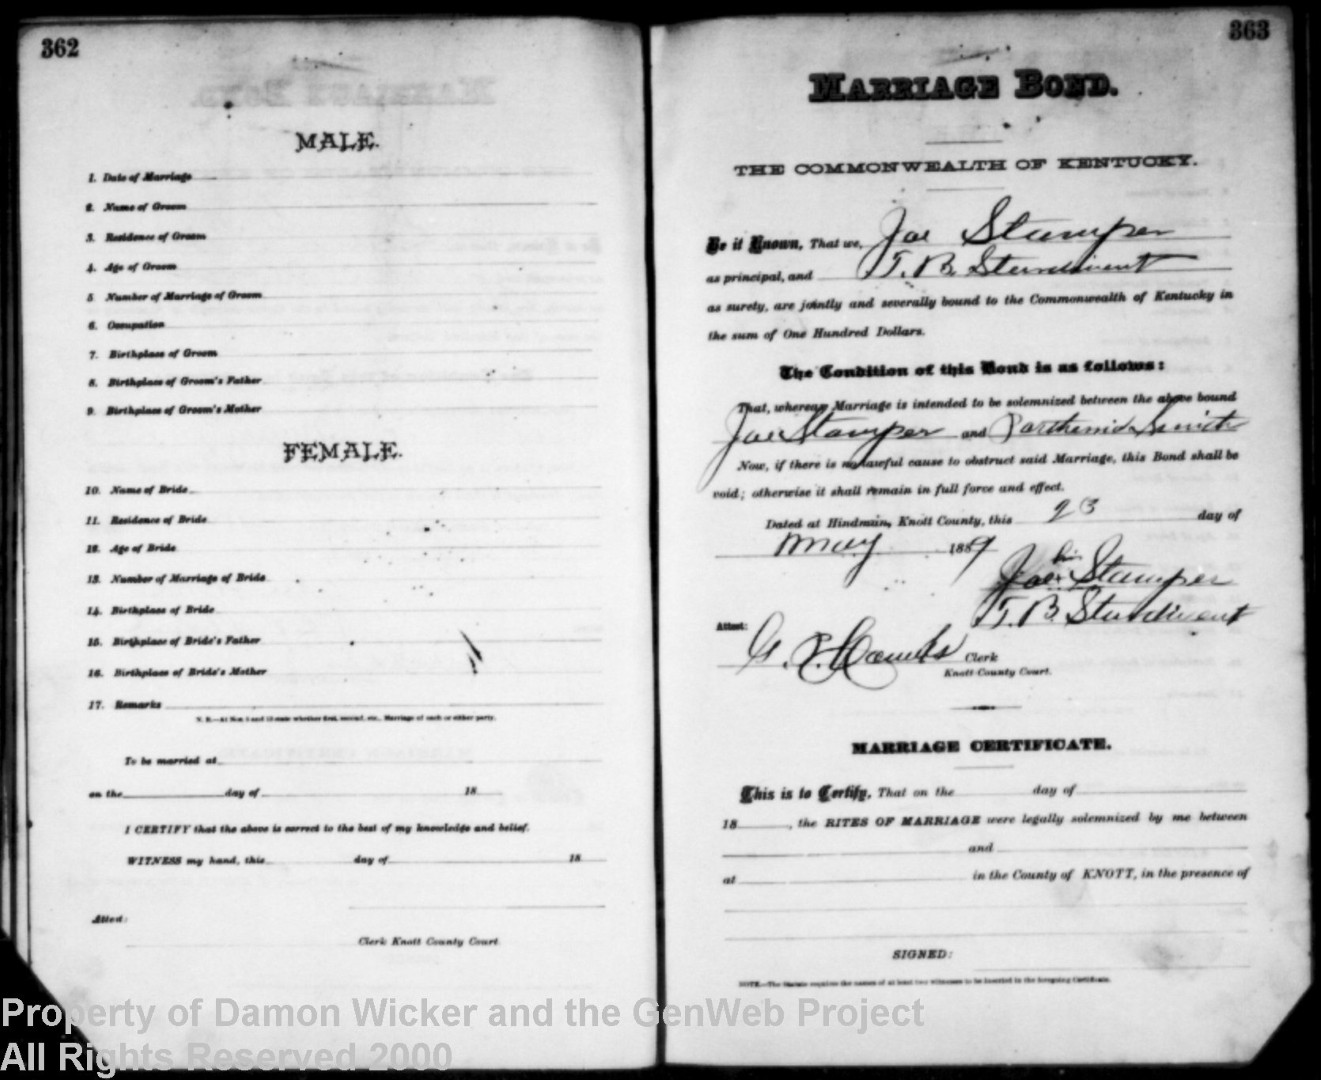 362
MALE.
1. Date of Marriage
2. Name of Groom
3. Residence of Groom
4. Age of Groom
5. Number of Marriage of Groom
6. Occupation
7. Birthplace of Groom
8. Birthplace of Groom's Father
9. Birthplace of Groom's Mother
FEMALE.
10. Name of Bride
11. Residence of Bride
12. Age of Bride
13. Number of Marriage of Bride
14. Birthplace of Bride
15. Birthplace of Bride's Father
16. Birthplace of Bride's Mother
17. Remarks
N. B.—At Nos. 5 and 13 state whether first, second, etc., Marriage of each or either party.
To be married at
on the day of 18
I CERTIFY that the above is correct to the best of my knowledge and belief.
WITNESS my hand, this day of 18
Attest:
Clerk Knott County Court.
363
MARRIAGE BOND.
THE COMMONWEALTH OF KENTUCKY.
Be it Known, That we, Joe Stamper
as principal, and T. B. Sturdivent
as surety, are jointly and severally bound to the Commonwealth of Kentucky in
the sum of One Hundred Dollars.
The Condition of this Bond is as follows:
That, whereas Marriage is intended to be solemnized between the above bound
Joe Stamper and Parthenia Smith
Now, if there is no lawful cause to obstruct said Marriage, this Bond shall be
void; otherwise it shall remain in full force and effect.
Dated at Hindman, Knott County, this 23 day of
May 1889
his
Joe x Stamper
T. B. Sturdivent
Attest:
Clerk
Knott County Court.
MARRIAGE CERTIFICATE.
This is to Certify, That on the day of
18 , the RITES OF MARRIAGE were legally solemnized by me between
and
at in the County of KNOTT, in the presence of
SIGNED:
NOTE.—The Statute requires the names of at least two witnesses to be inserted in the foregoing Certificate.
Property of Damon Wicker and the GenWeb Project
All Rights Reserved 2000